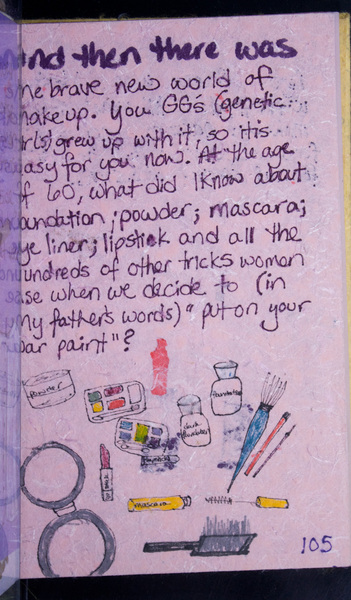 and then there was
the brave new world of
makeup. You GGs (genetic
girls) grew up with it, so it is
easy for you now. At the age
of 60, what did I know about
foundation; powder; mascara;
eye liner; lipstick and all the
hundreds of other tricks women
use when we decide to (in
my father's words) "put on your
war paint"?
powder
foundation
mascara
105